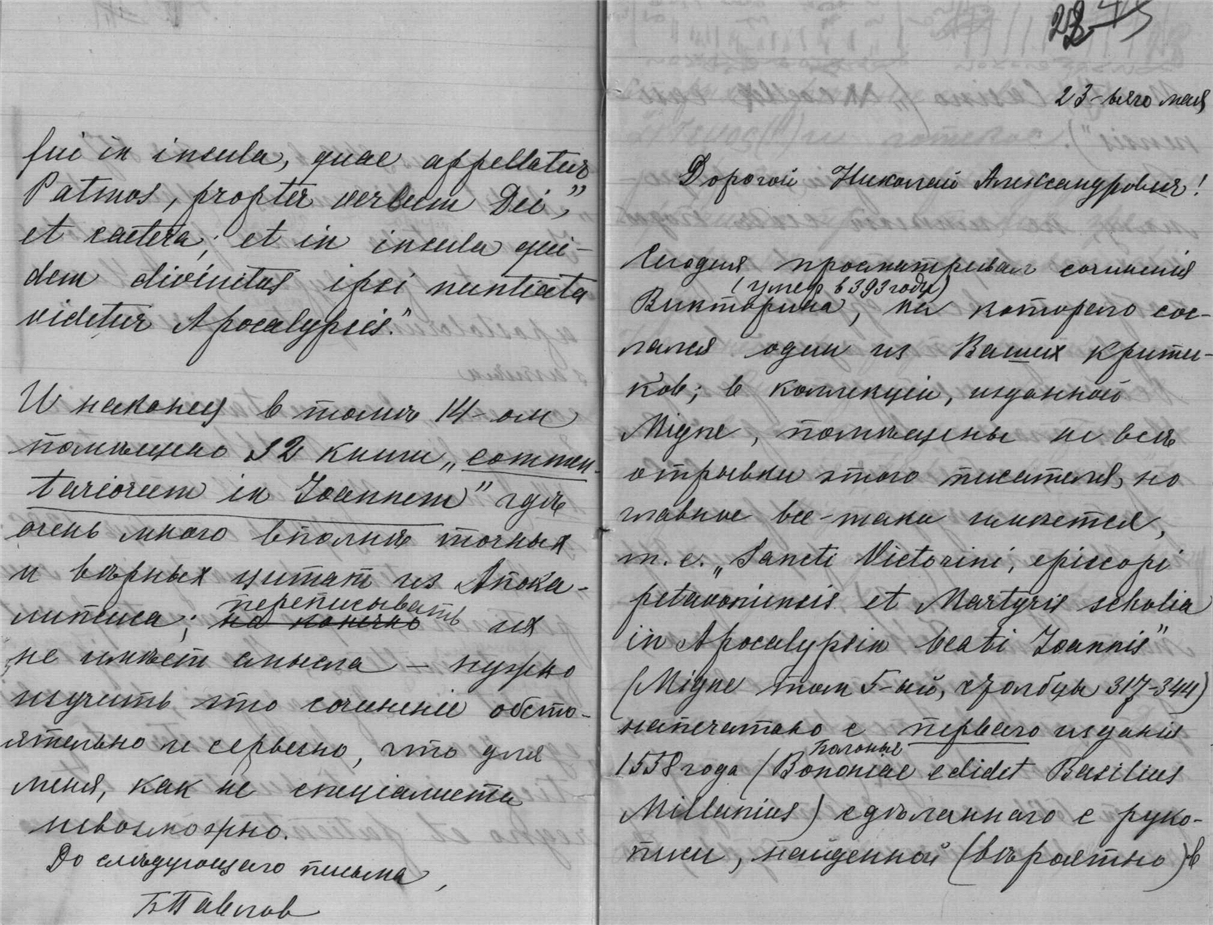 fui in insula, quae appellatur
Patmos, propter verbum Dei",
et caetera; et in insula qui-
dem divinitus ipsi nuntiata
videtur Apocalypsis."
И наконец в томѣ 14-ом
помѣщено 32 книги „commen-
tariorum in Joannem" гдѣ
очень много вполнѣ точных
и вѣрных цитат из Апока-
липсиса; переписывать их
не имѣет смысла — нужно
изучить это сочиненіе обсто-
ятельно и серьезно, что для
меня, как не спеціалиста
невозможно.
До слѣдующаго письма,
БПавлов
23-ьяго мая
Дорогой Николай Александрович!
Сегодня просматривал сочинения
(умер в 393 году)
Викторина, на котораго сос-
лался один из Ваших крити-
ков; в коллекціи, изданной
Migne, помѣщены не всѣ
отрывки этого писателя, но
главное все-таки имѣется,
т. е. „Sancti Victorini, episcopi
petavoniensis et Martyris scholia
in Apocalypsin beati Joannis"
(Migne том 5-ый, столбцы 317-344)
напечатано с перваго изданія
1558 года (Bononiae edidet Basilius
Millanius) сдѣланнаго с руко-
писи, найденной (вѣроятно) в